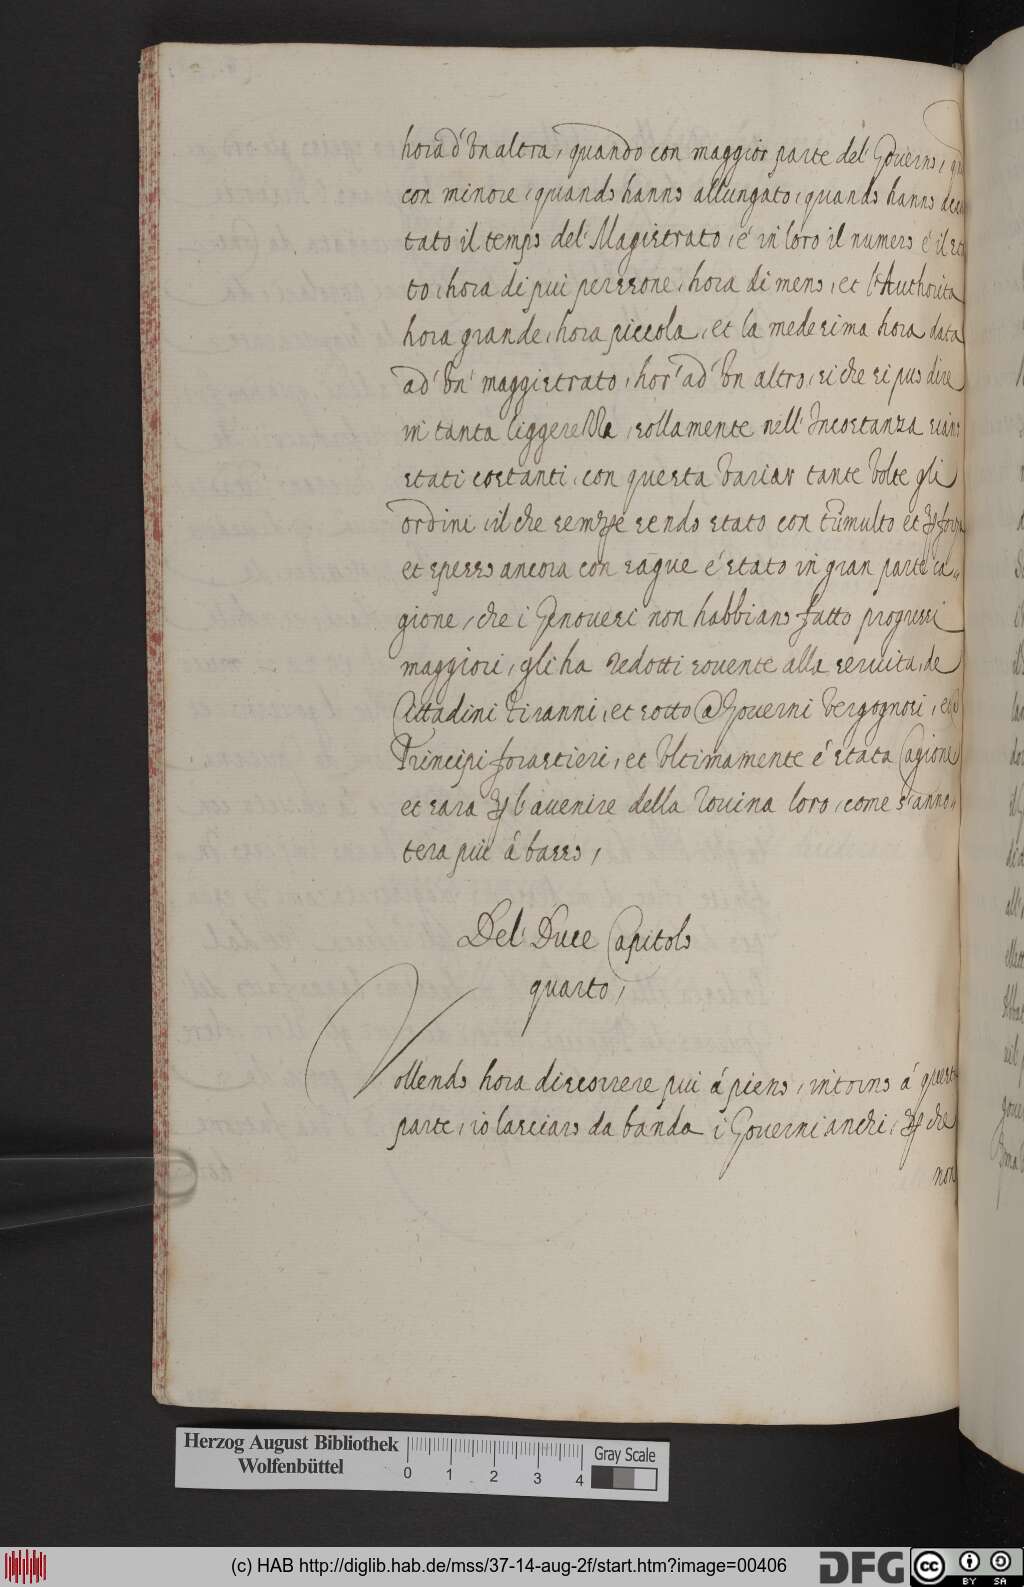 hora d'Vn altra, quando con maggior parte del Gouerno,
con minore, quando hanno allungato, quando hanno
tato il tempo del Magistrato, é in loro il numero é il
to, hora di piu persone, hora di meno, et l'Authorita
hora grande, hora piccola, et la medesima hora data
ad' Vn' maggistrato, hor' ad' Vn altro, si che si puo dire
in tanta liggerezza, sollamente nell' Incostanza siano
stati costanti, con questa Variar tante Volte gli
ordini, il che sempre sendo stato con tumulto et per forza
et spesso ancora con sague é stato in gran parte ca„
gione, che i Genouesi non habbiano fatto progressi
maggiori, gli ha redotti souente alla seruita, de
Cittadini Tiranni, et sotto a Gouerni Vergognosi, et
Principi forastieri, et Vltimamente é stata Cagione
et sara per l'auenire della rouina loro, come s'anno„
tera piu á basso,
Del' Duce Capitolo
quarto,
Vollendo hora discorrere piu á pieno, intorno á questa
parte, io lasciaro da banda i Gouerni anchi, per che
non
Herzog August Bibliothek
Wolfenbüttel
0 1 2 3 4
Gray Scale
(c) HAB http://diglib.hab.de/mss/37-14-aug-2f/start.htm?image=00406
DFG
cc BY SA